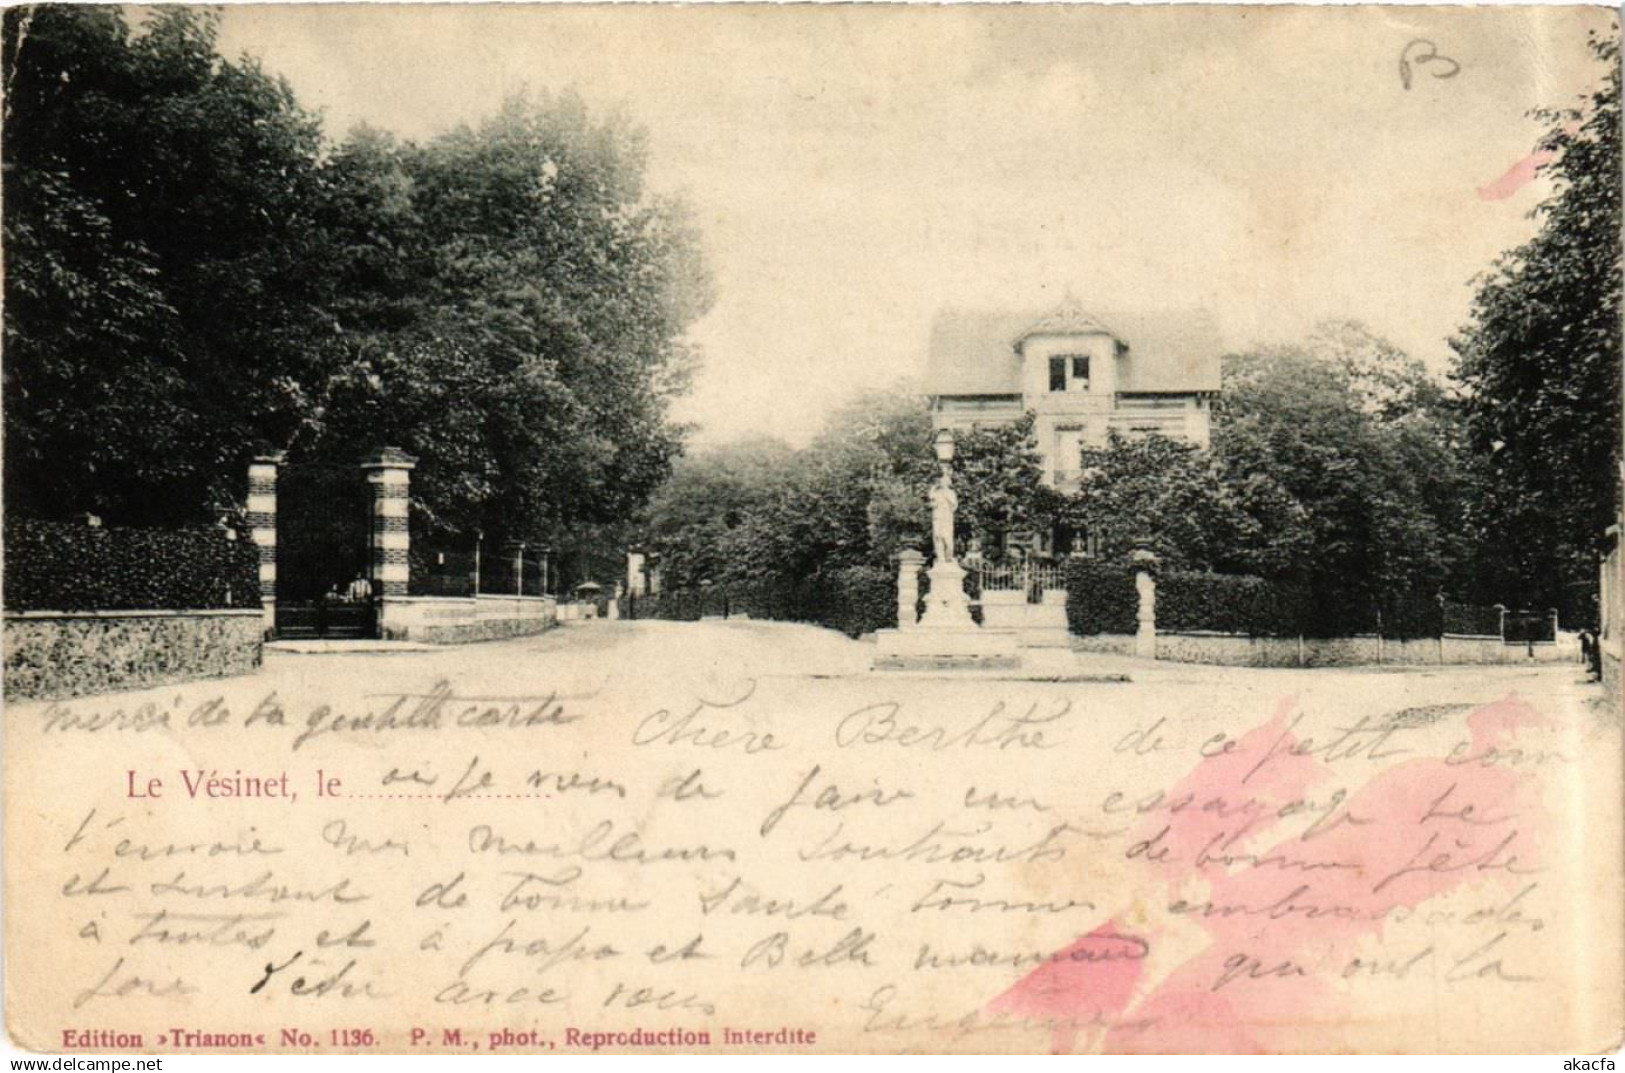 B
Merci de ta gentille carte
Chère Berthe de ce petit coin
Le Vésinet, le
où je viens de faire un essayage je
t'envoie mes meilleurs souhaits de bonne fête
et surtout de bonne santé bonnes embrassades
à toutes et à papa et Belle maman qui ont la
joie d'être avec vous
Edition »Trianon« No. 1136. P. M., phot., Reproduction interdite
akacfa